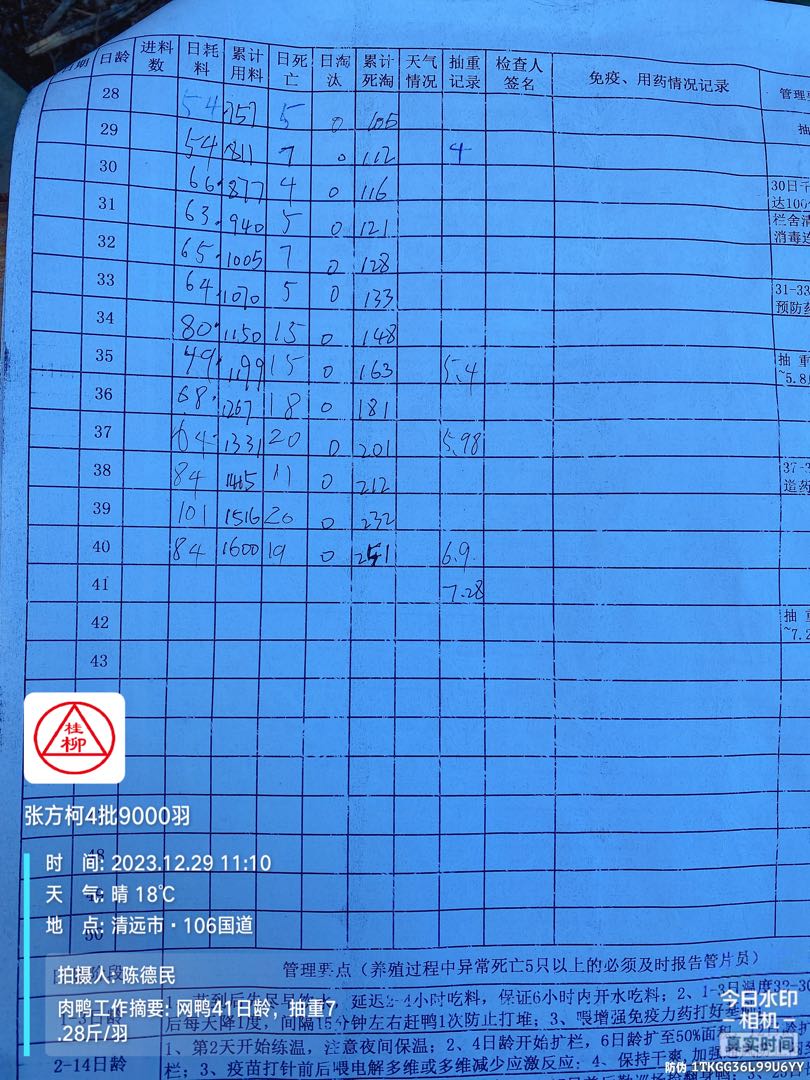 日期 日龄 进料数 日耗料 累计用料 日死亡 日淘汰 累计死淘 天气情况 抽重记录 检查人签名 免疫、用药情况记录 管理要
28 54 757 5 0 105
29 54 811 7 0 112 4
30 66 877 4 0 116
31 63 940 5 0 121
32 65 1005 7 0 128
33 64 1070 5 0 133
34 80 1150 15 0 148
35 49 1199 15 0 163 5.4
36 68 1267 18 0 181
37 64 1331 20 0 201 5.98
38 84 11 0 212
39 101 1516 20 0 232
40 84 1600 19 0 251 6.9
41 7.28
42
43
抽
30日
达100
栏舍清
消毒连
31-33
预防药
抽 重
~5.8
37-3
造药
抽 重
~7.2
桂
柳
张方柯4批9000羽
时 间: 2023.12.29 11:10
天 气: 晴 18℃
地 点: 清远市·106国道
拍摄人: 陈德民
肉鸭工作摘要: 网鸭41日龄，抽重7
.28斤/羽
48
50
阶段 管理要点（养殖过程中异常死亡5只以上的必须及时报告管片员）
延迟2-4小时吃料，保证6小时内开水吃料；2、1-3日温度32-30
后每天降1度，间隔15分钟左右赶鸭1次防止打堆；3、喂增强免疫力药打好基
2-14日龄
1、第2天开始练温，注意夜间保温；2、4日龄开始扩栏，6日龄扩至50%面积
栏；3、疫苗打针前后喂电解多维或多维减少应激反应；4、保持干爽，加强
今日水印
相机
真实时间
防伪 1TKGG36L99U6YY